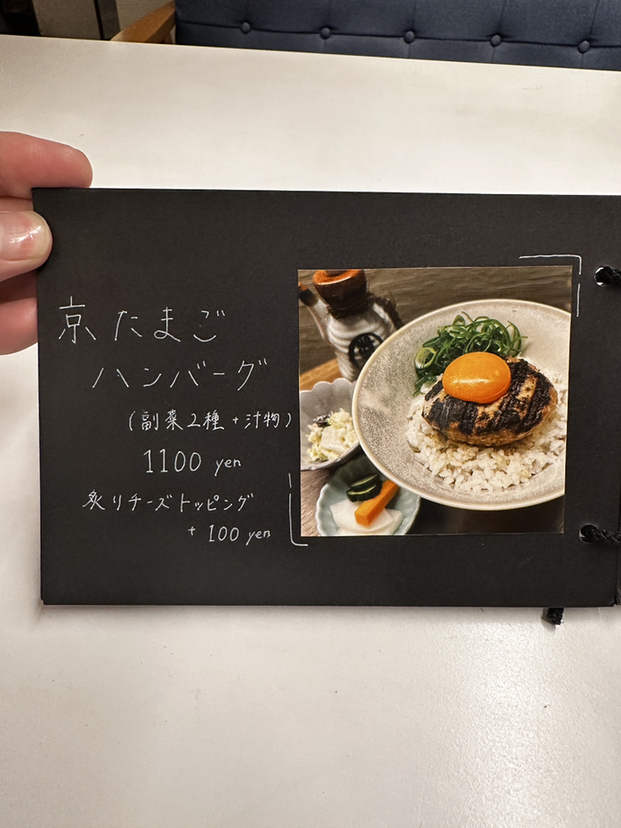 京たまご
ハンバーグ
(副菜2種+汁物)
1100 yen
炙りチーズトッピング
+ 100 yen